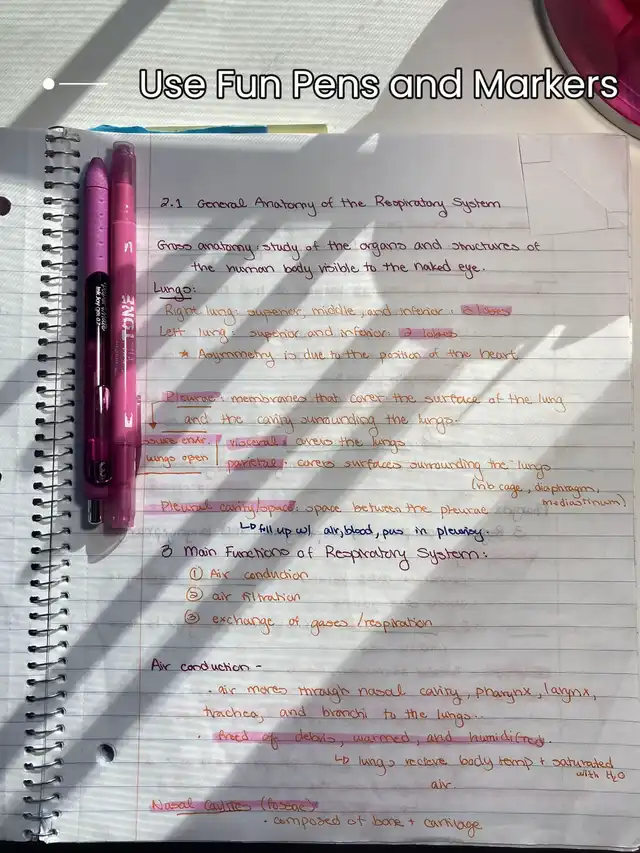 Use Fun Pens and Markers
2.1 General Anatomy of the Respiratory System
Gross anatomy: study of the organs and structures of
the human body visible to the naked eye.
Lungs:
Right lung: superior, middle, and inferior: 3 lobes
Left lung: superior and inferior: 2 lobes
* Asymmetry is due to the position of the heart
Pleurae: membranes that cover the surface of the lung
and the cavity surrounding the lungs.
visceral: covers the lungs
lungs open
parietal: covers surfaces surrounding the lungs
(rib cage, diaphragm,
mediastinum)
Pleural cavity/space: space between the pleurae
↳ fill up w/ air, blood, pus in pleurisy.
3 Main Functions of Respiratory System:
① Air conduction
② air filtration
③ exchange of gases /respiration
Air conduction -
· air moves through nasal cavity, pharynx, larynx,
trachea, and bronchi to the lungs..
· freed of debris, warmed, and humidified.
↳ lungs recieve body temp + saturated
with H2O
air.
Nasal Cavities (fossae)
· composed of bone + cartilage